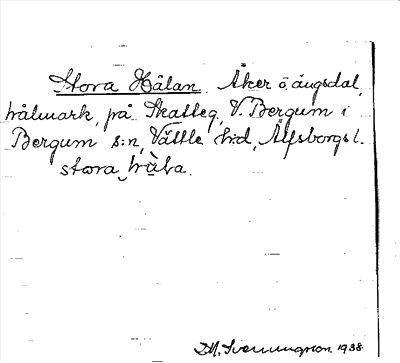 Stora Hålan. Åker o. ängsdal,
hålmark, på Skatteg. V. Bergum i
Bergum s:n, Vättle h:d, Älfsborgs l.
stora,
D.M. Svenningson. 1938